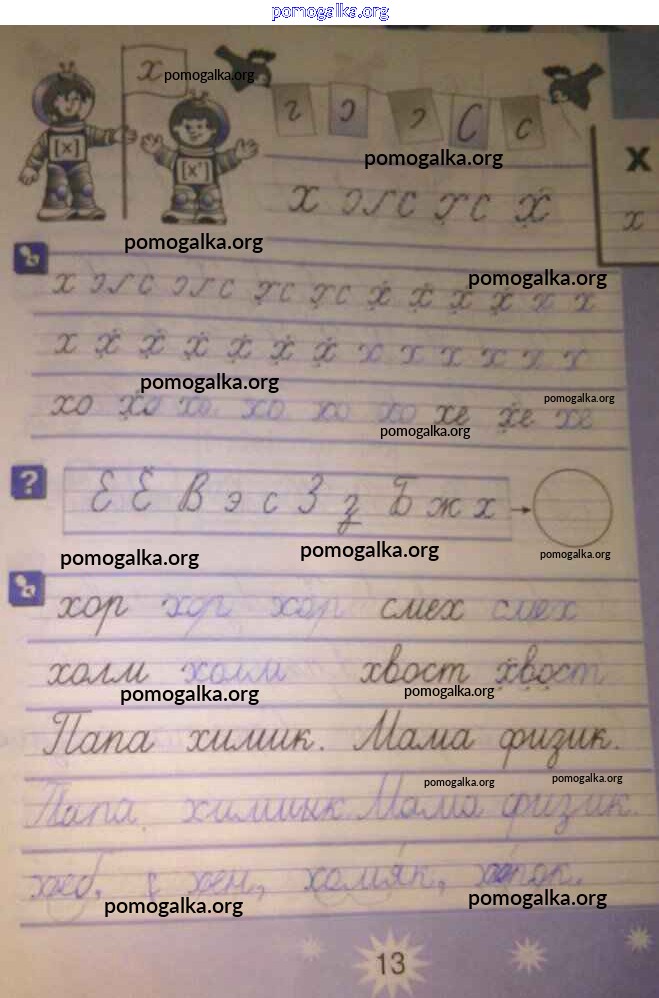 pomogalka.org
х pomogalka.org
г э э С с
[х] [х'] pomogalka.org х
х х х х
pomogalka.org
х х х х х х х х х pomogalka.org
х х х х х х х х х х х х х
pomogalka.org
хо хо хо хо хо хо хе хе хе pomogalka.org
pomogalka.org
? Е Ё В э с З з Б ж х
pomogalka.org pomogalka.org pomogalka.org
хор хор хор смех смех
холм холм хвост хвост
pomogalka.org pomogalka.org
Папа химик. Мама физик.
pomogalka.org pomogalka.org
Папа химик. Мама физик.
хомяк,
pomogalka.org pomogalka.org
13